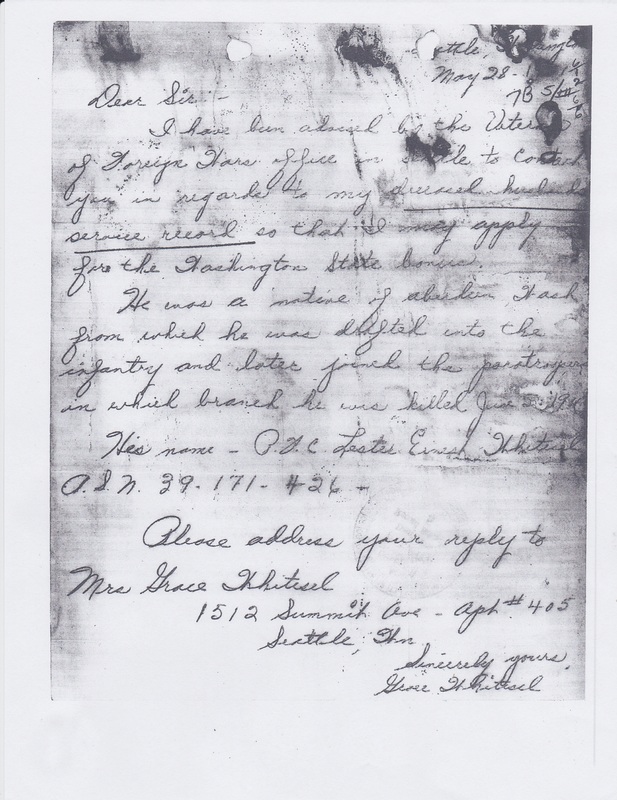 Seattle, Washington
May 28 -
Dear Sir: -
I have been advised by the Veterans
of Foreign Wars office in Seattle to contact
you in regards to my deceased husbands
service record so that I may apply
for the Washington State bonus.
He was a native of Aberdeen Wash
from which he was drafted into the
infantry and later joined the paratroopers
in which branch he was killed
His name - P.F.C. Lester Ernest Whitesel
A.S.N. 39-171-426 -
Please address your reply to
Mrs Grace Whitesel
1512 Summit Ave - Apt # 405
Seattle, Wn
Sincerely yours,
Grace Whitesel